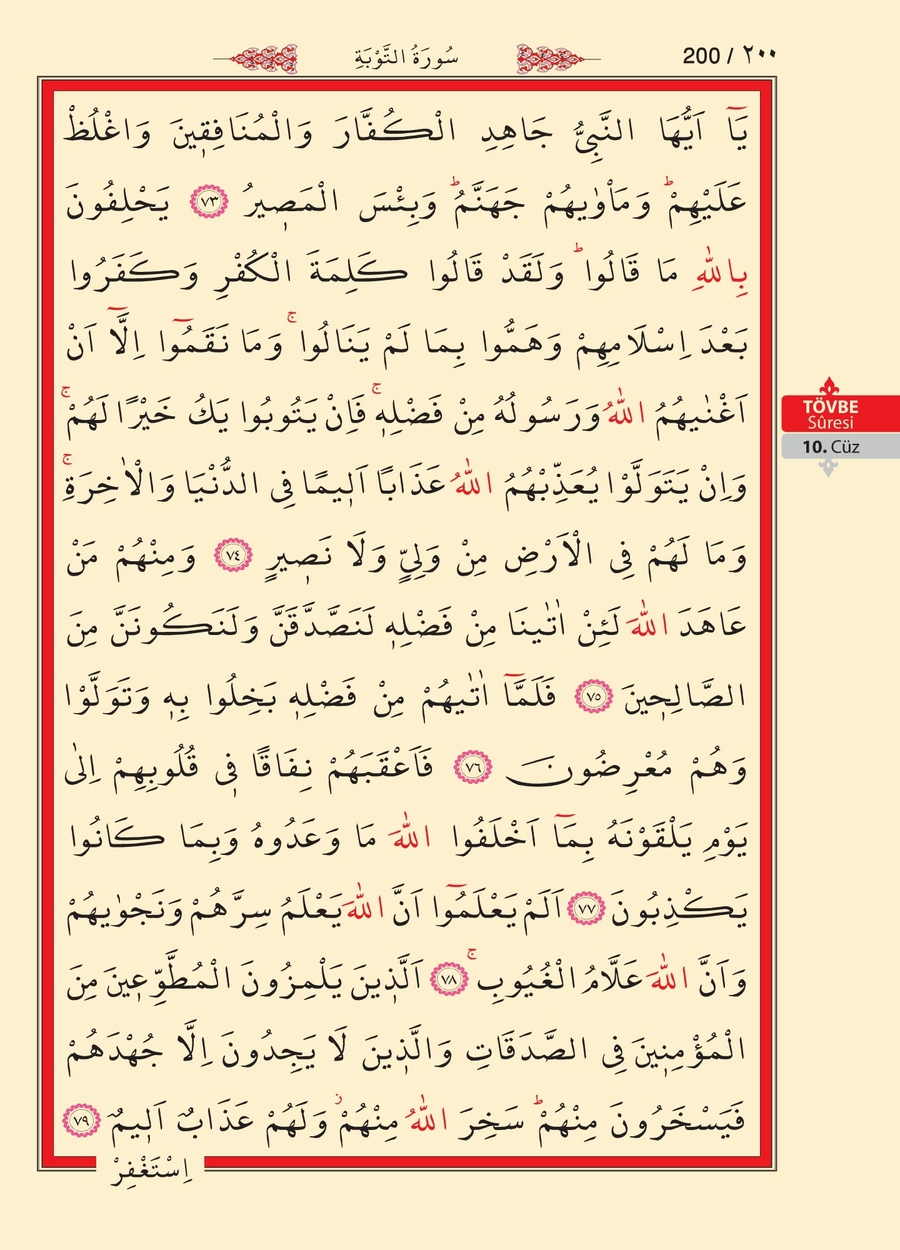 سُورَةُ التَّوْبَةِ
200 / ٢٠٠
يَٓا اَيُّهَا النَّبِيُّ جَاهِدِ الْكُفَّارَ وَالْمُنَافِق۪ينَ وَاغْلُظْ
عَلَيْهِمْۜ وَمَأْوٰيهُمْ جَهَنَّمُۜ وَبِئْسَ الْمَص۪يرُ ﴿٧٣﴾ يَحْلِفُونَ
بِاللّٰهِ مَا قَالُواۜ وَلَقَدْ قَالُوا كَلِمَةَ الْكُفْرِ وَكَفَرُوا
بَعْدَ اِسْلَامِهِمْ وَهَمُّوا بِمَا لَمْ يَنَالُواۚ وَمَا نَقَمُٓوا اِلَّٓا اَنْ
اَغْنٰيهُمُ اللّٰهُ وَرَسُولُهُ مِنْ فَضْلِه۪ۚ فَاِنْ يَتُوبُوا يَكُ خَيْرًا لَهُمْۚ
وَاِنْ يَتَوَلَّوْا يُعَذِّبْهُمُ اللّٰهُ عَذَابًا اَل۪يمًا فِى الدُّنْيَا وَالْاٰخِرَةِۚ
وَمَا لَهُمْ فِى الْاَرْضِ مِنْ وَلِيٍّ وَلَا نَص۪يرٍ ﴿٧٤﴾ وَمِنْهُمْ مَنْ
عَاهَدَ اللّٰهَ لَئِنْ اٰتٰينَا مِنْ فَضْلِه۪ لَنَصَّدَّقَنَّ وَلَنَكُونَنَّ مِنَ
الصَّالِح۪ينَ ﴿٧٥﴾ فَلَمَّٓا اٰتٰيهُمْ مِنْ فَضْلِه۪ بَخِلُوا بِه۪ وَتَوَلَّوْا
وَهُمْ مُعْرِضُونَ ﴿٧٦﴾ فَاَعْقَبَهُمْ نِفَاقًا ف۪ى قُلُوبِهِمْ اِلٰى
يَوْمِ يَلْقَوْنَهُ بِمَٓا اَخْلَفُوا اللّٰهَ مَا وَعَدُوهُ وَبِمَا كَانُوا
يَكْذِبُونَ ﴿٧٧﴾ اَلَمْ يَعْلَمُٓوا اَنَّ اللّٰهَ يَعْلَمُ سِرَّهُمْ وَنَجْوٰيهُمْ
وَاَنَّ اللّٰهَ عَلَّامُ الْغُيُوبِۚ ﴿٧٨﴾ اَلَّذ۪ينَ يَلْمِزُونَ الْمُطَّوِّع۪ينَ مِنَ
الْمُؤْمِن۪ينَ فِى الصَّدَقَاتِ وَالَّذ۪ينَ لَا يَجِدُونَ اِلَّا جُهْدَهُمْ
فَيَسْخَرُونَ مِنْهُمْۜ سَخِرَ اللّٰهُ مِنْهُمْۘ وَلَهُمْ عَذَابٌ اَل۪يمٌ ﴿٧٩﴾
اِسْتَغْفِرْ
TÖVBE
Sûresi
10. Cüz